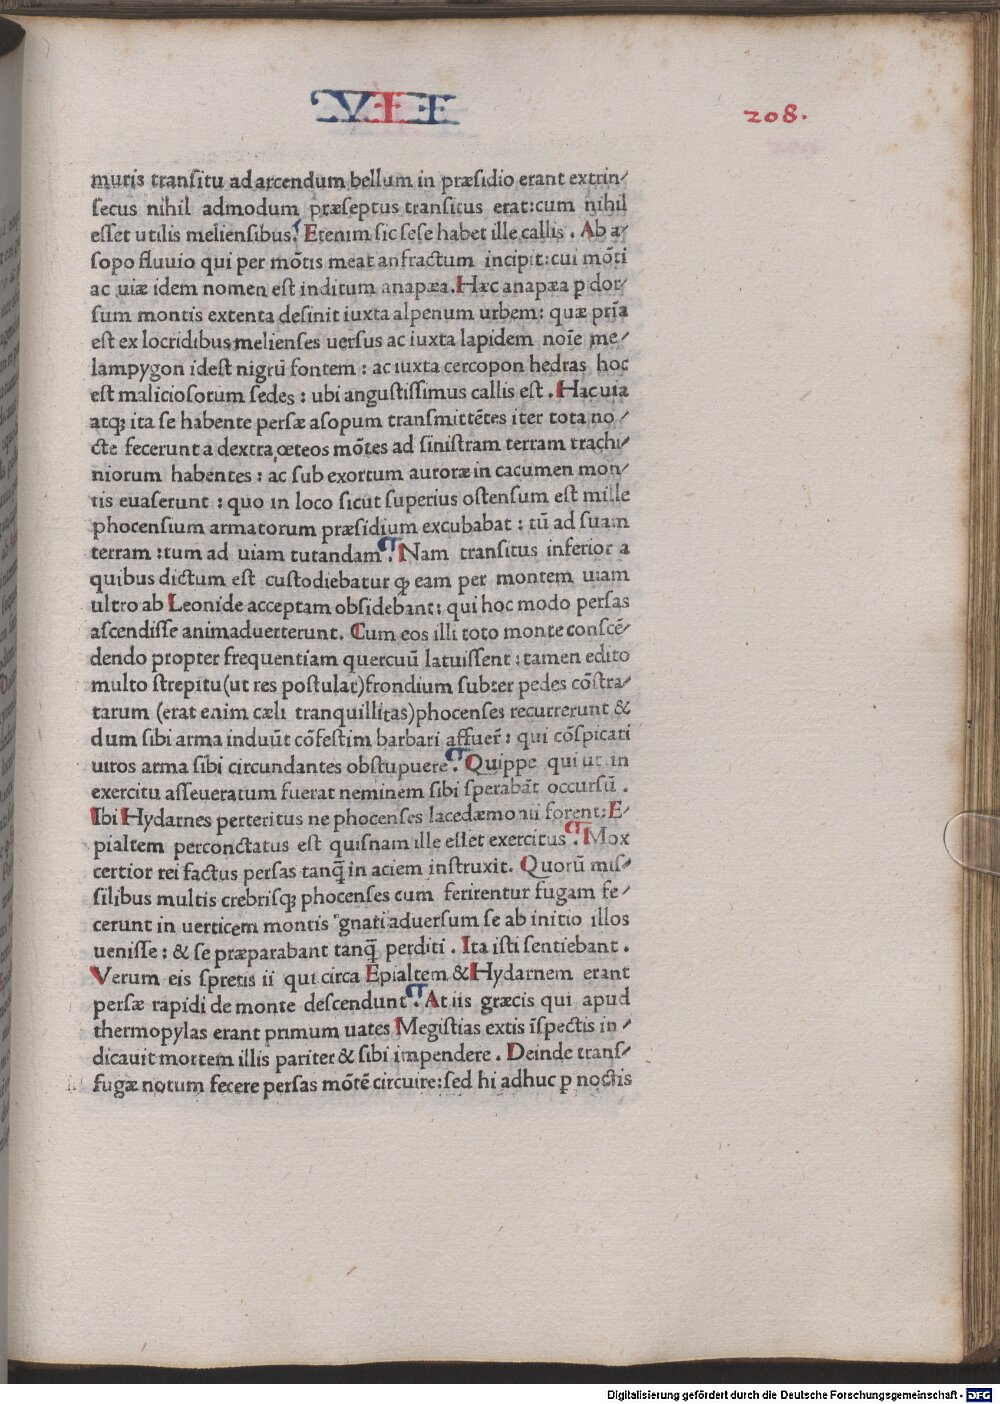 VII
208.
muris transitu ad arcendum bellum in præsidio erant extrin⸗
secus nihil admodum præseptus transitus erat:cum nihil
esset utilis meliensibus. Etenim sic sese habet ille callis . Ab a⸗
sopo fluuio qui per mōtis meat anfractum incipit:cui mōti
ac uiæ idem nomen est inditum anapæa.Hæc anapæa ꝑ dor⸗
sum montis extenta desinit iuxta alpenum urbem: quæ prīa
est ex locridibus melienses uersus ac iuxta lapidem noīe me⸗
lampygon idest nigrū fontem : ac iuxta cercopon hedras hoc
est maliciosorum sedes : ubi angustissimus callis est . Hac uia
atq; ita se habente persæ asopum transmittētes iter tota no⸗
cte fecerunt a dextra œteos mōtes ad sinistram terram trachi⸗
niorum habentes : ac sub exortum auroræ in cacumen mon⸗
tis euaserunt : quo in loco sicut superius ostensum est mille
phocensium armatorum præsidium excubabat : tū ad suam
terram :tum ad uiam tutandam. Nam transitus inferior a
quibus dictum est custodiebatur ꝙ eam per montem uiam
ultro ab Leonide acceptam obsidebant: qui hoc modo persas
ascendisse animaduerterunt. Cum eos illi toto monte conscē⸗
dendo propter frequentiam quercuū latuissent : tamen edito
multo strepitu(ut res postulat)frondium subter pedes cōstra⸗
tarum (erat enim cæli tranquillitas)phocenses recurrerunt &
dum sibi arma induūt cōfestim barbari affuer̄ : qui cōspicati
uiros arma sibi circundantes obstupuere. Quippe qui ut in
exercitu asseueratum fuerat neminem sibi sperabāt occursū .
Ibi Hydarnes perteritus ne phocenses lacedæmonii forent:E⸗
pialtem perconctatus est quisnam ille esset exercitus. Mox
certior rei factus persas tanq̄ in aciem instruxit. Quorū mis⸗
silibus multis crebrisq; phocenses cum ferirentur fugam fe⸗
cerunt in uerticem montis gnati aduersum se ab initio illos
uenisse : & se præparabant tanq̄ perditi . Ita isti sentiebant .
Verum eis spretis ii qui circa Epialtem & Hydarnem erant
persæ rapidi de monte descendunt. At iis græcis qui apud
thermopylas erant primum uates Megistias extis īspectis in⸗
dicauit mortem illis pariter & sibi impendere . Deinde trans⸗
fugæ notum fecere persas mōtē circuire:sed hi adhuc ꝑ noctis
Digitalisierung gefördert durch die Deutsche Forschungsgemeinschaft - DFG